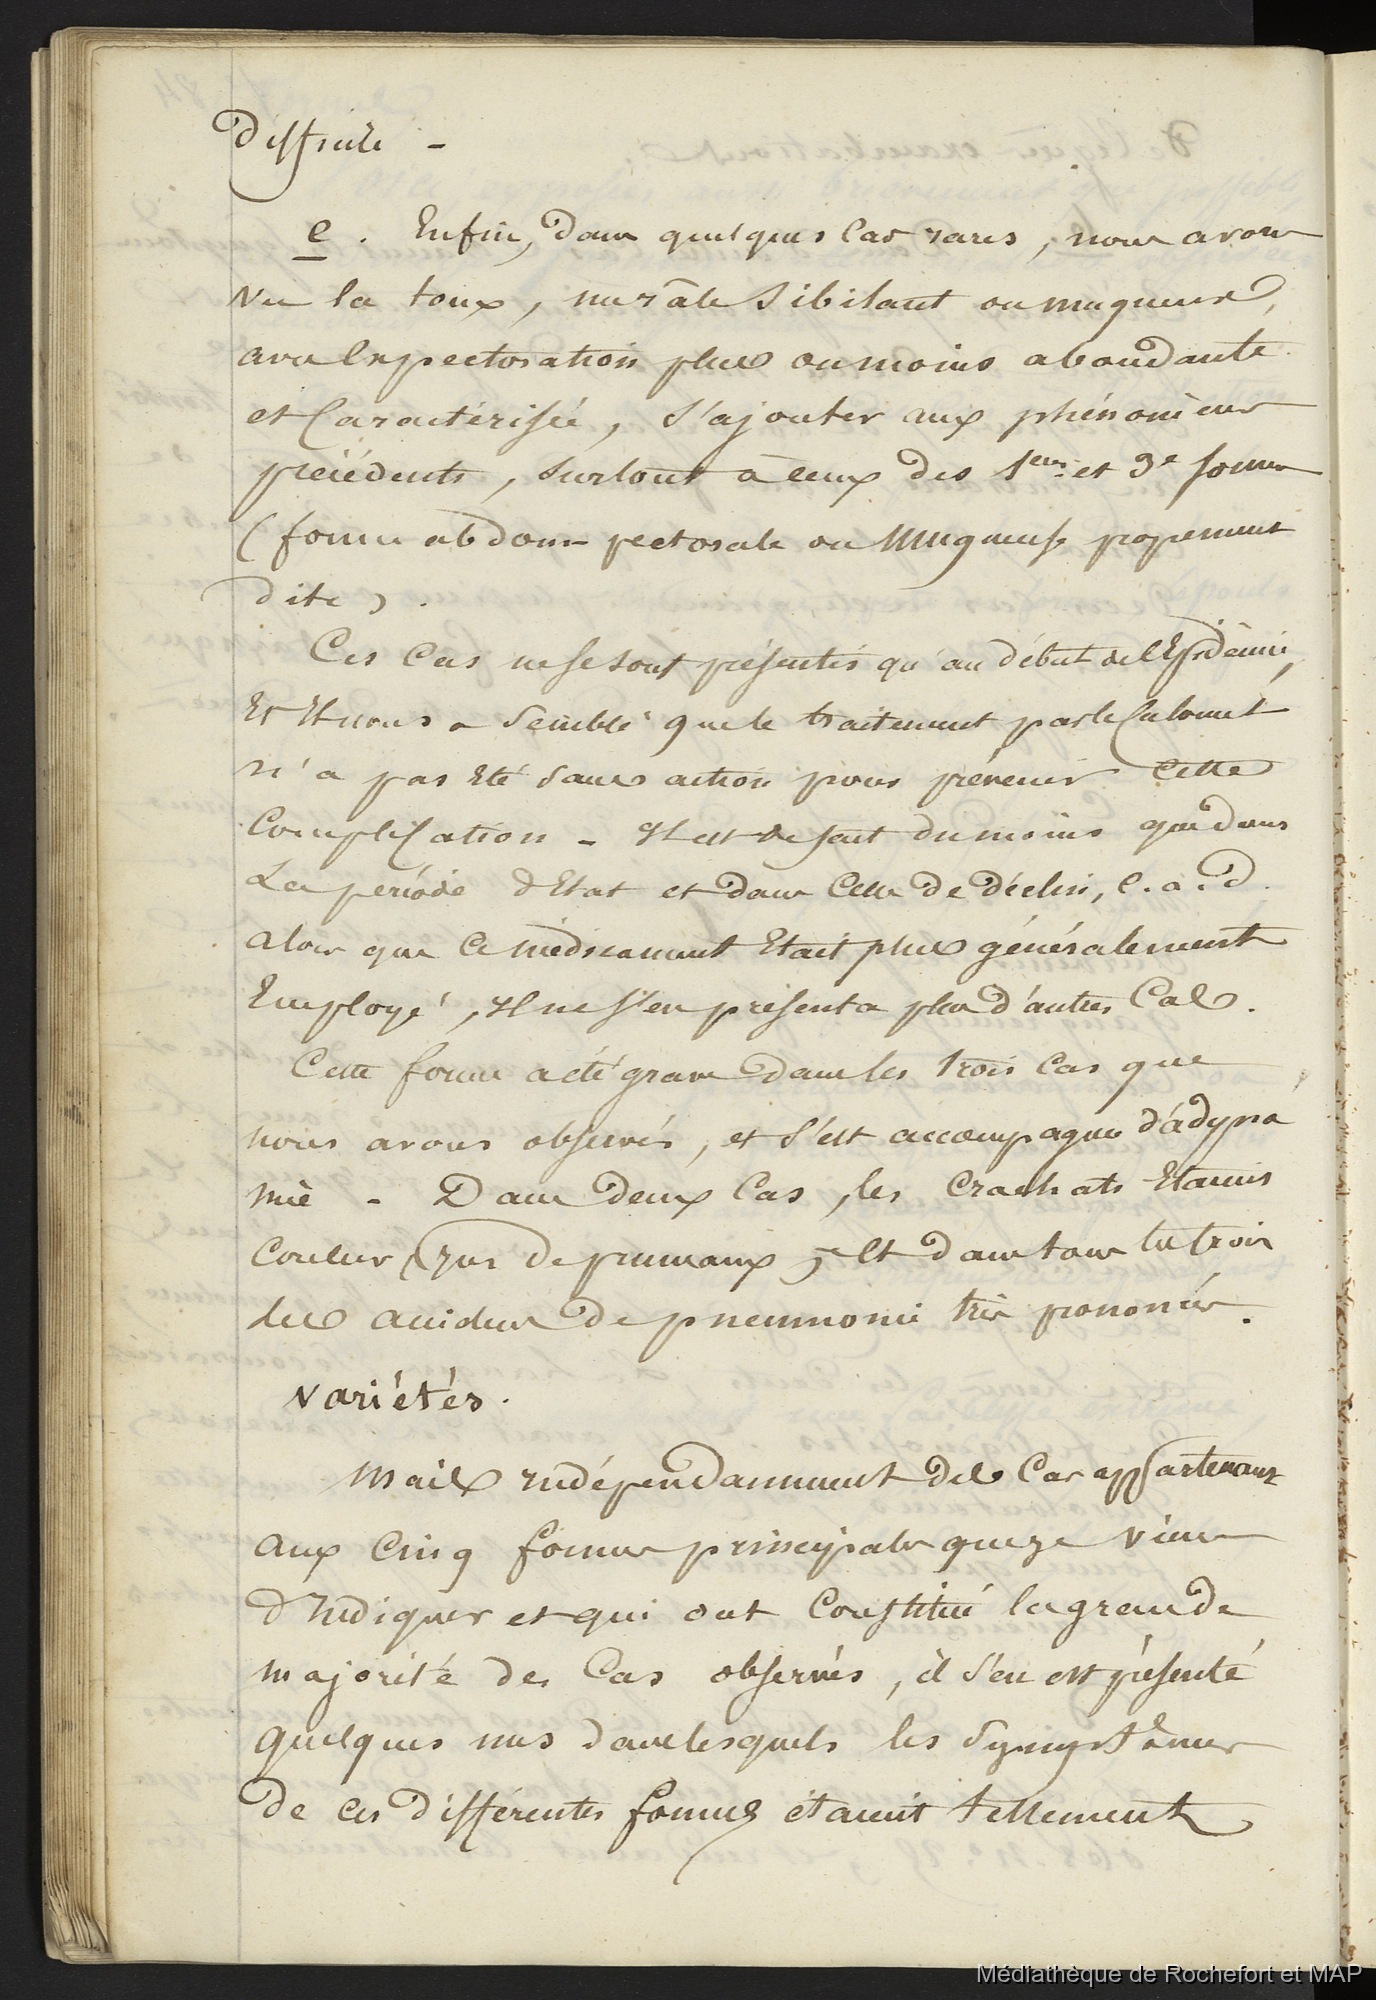 difficile -
e. Enfin, dans quelques cas rares, nous avons
vu la toux, un râle sibilant ou muqueux,
avec Expectoration plus ou moins abondante
et Caractérisée, s'ajouter aux phénomènes
précédents, surtout à ceux des 1eres et 3e formes
(forme abdom- pectorale ou Muqueuse proprement
dite).
Ces Cas ne se sont présentés qu'au début de l'Epidémie,
Et Il nous a semblé que le traitement par le Calomel
n'a pas Eté sans action pour prévenir cette
Complication - Il est de fait du moins que dans
La période d'Etat et dans Celle de déclin, c. a. d.
alors que Ce médicament Etait plus généralement
Employé, Il ne s'en présenta plus d'autres Cas.
Cette forme a été grave dans les trois Cas que
nous avons observés, et s'est accompagnée d'adyna
mie - Dans deux Cas, les Crachats Etaient
Couleur Jus de pruneaux; Et dans tous les trois
des accidens de pneumonie très prononcés.
Variétés.
Mais Indépendamment des Cas appartenant
aux Cinq formes principales que je viens
d'Indiquer et qui ont Constitué la grande
majorité des Cas observés, il s'en est présenté
quelques uns dans lesquels les Symptômes
de ces différentes formes étaient tellement
Médiathèque de Rochefort et MAP